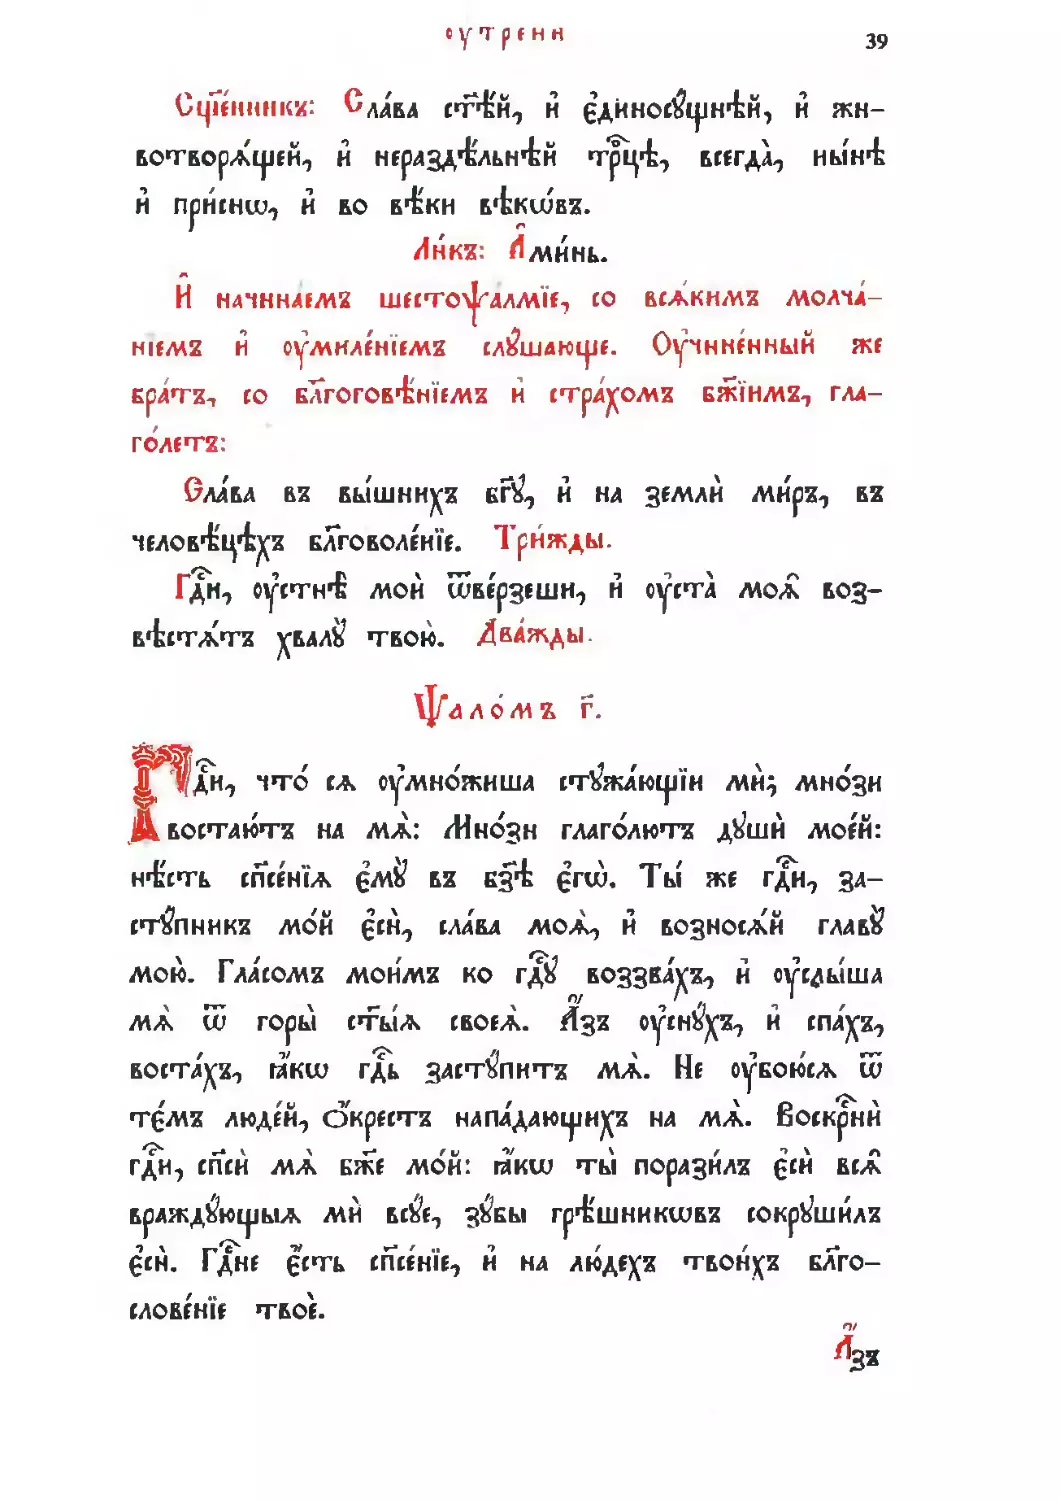 оутрени 39
Сщ҃е́нникъ: Сла́ва ст҃ѣ́й, и҆ є҆диносꙋ́щнѣй, и҆ жи-
вотворѧ́щей, и҆ нераздѣ́льнѣй трⷪ҇цѣ, всегда̀, ны́нѣ
и҆ при́снѡ, и҆ во вѣ́ки вѣкѡ́въ.
Ли́къ: А҆ми́нь.
И҆ начина́емъ шестоѱа́лмїе, со всѧ́кимъ молча́-
нїемъ и҆ ᲂу҆миле́нїемъ слꙋ́шающе. Оу҆чине́нный же
бра́тъ, со бл҃гоговѣ́нїемъ и҆ стра́хомъ бж҃їимъ, гла-
го́летъ:
Сла́ва въ вы́шнихъ бг҃ꙋ, и҆ на землѝ ми́ръ, въ
человѣ́цѣхъ бл҃говоле́нїе. Три́жды.
Гдⷭ҇и, ᲂу҆стнѣ̑ моѝ ѿве́рзеши, и҆ ᲂу҆ста̀ моѧ̑ воз-
вѣстѧ́тъ хвалꙋ̀ твою̀. Два́жды.
Ѱало́мъ г҃.
Гдⷭ҇и, что́ сѧ ᲂу҆мно́жиша стꙋжа́ющїи мѝ; мно́зи
востаю́тъ на мѧ̀: Мно́зи глаго́лютъ дꙋшѝ мое́й:
нѣ́сть сп҃се́нїѧ є҆мꙋ̀ въ бз҃ѣ є҆гѡ̀. Ты́ же гдⷭ҇и, за-
стꙋ́пникъ мо́й є҆сѝ, сла́ва моѧ̀, и҆ возносѧ́й главꙋ̀
мою̀. Гла́сомъ мои́мъ ко гдⷭ҇ꙋ воззва́хъ, и҆ ᲂу҆слы́ша
мѧ̀ ѿ горы̀ ст҃ы́ѧ своеѧ̀. А҆́зъ ᲂу҆снꙋ́хъ, и҆ спа́хъ,
воста́хъ, ꙗ҆́кѡ гдⷭ҇ь застꙋ́питъ мѧ̀. Не ᲂу҆бою́сѧ ѿ
те́мъ люде́й, ѻ҆́крестъ напа́дающихъ на мѧ̀. Воскрⷭ҇нѝ
гдⷭ҇и, сп҃сѝ мѧ̀ бж҃е мо́й: ꙗ҆́кѡ ты̀ порази́лъ є҆сѝ всѧ̑
вражд́ꙋющыѧ мѝ всꙋ́е, зꙋ́бы грѣ́шникѡвъ сокрꙋши́лъ
є҆сѝ. Гдⷭ҇не є҆́сть сп҃се́нїе, и҆ на лю́дехъ твои́хъ бл҃го-
слове́нїе твоѐ.
А҆́зъ